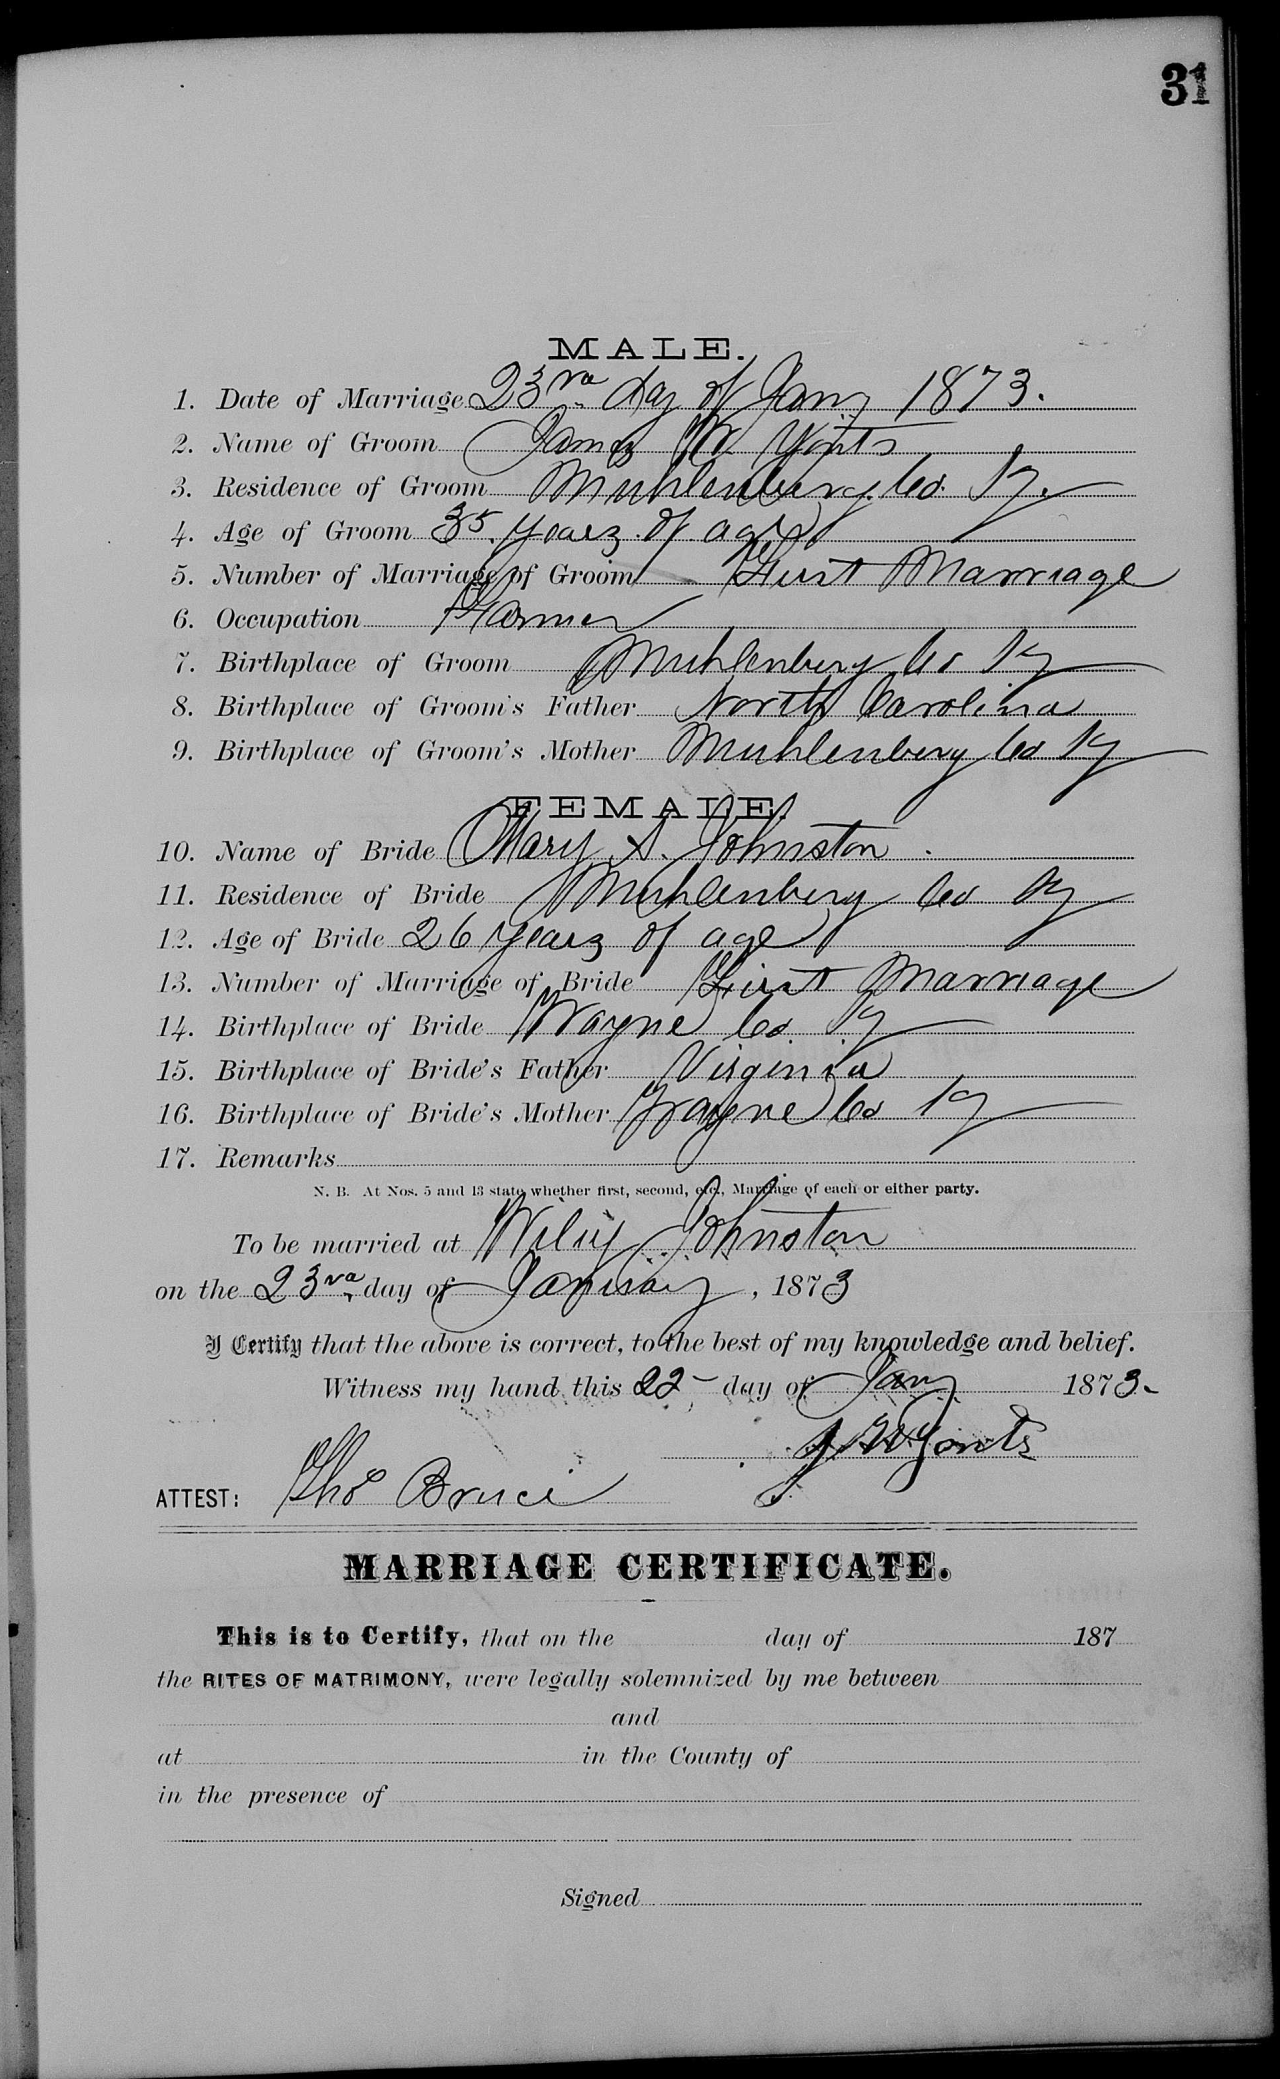 31
MALE.
1. Date of Marriage 23rd day of Jany 1873.
2. Name of Groom James W. Yonts
3. Residence of Groom Muhlenburg. Co. Ky.
4. Age of Groom 35. years. of age
5. Number of Marriage of Groom First Marriage
6. Occupation Farmer
7. Birthplace of Groom Muhlenburg Co Ky
8. Birthplace of Groom's Father North Carolina
9. Birthplace of Groom's Mother Muhlenburg Co Ky
FEMALE.
10. Name of Bride Mary S. Johnston.
11. Residence of Bride Muhlenburg Co Ky
12. Age of Bride 26 years of age
13. Number of Marriage of Bride First Marriage
14. Birthplace of Bride Wayne Co. Ky
15. Birthplace of Bride's Father Virginia
16. Birthplace of Bride's Mother Wayne Co Ky
17. Remarks
N. B. At Nos. 5 and 13 state whether first, second, etc., Marriage of each or either party.
To be married at Wiley Johnston
on the 23rd day of January, 1873
I Certify that the above is correct, to the best of my knowledge and belief.
Witness my hand this 22 day of Jany 1873.
J W Yonts
ATTEST: Tho Bruce
MARRIAGE CERTIFICATE.
This is to Certify, that on the day of 187
the RITES OF MATRIMONY, were legally solemnized by me between
and
at in the County of
in the presence of
Signed